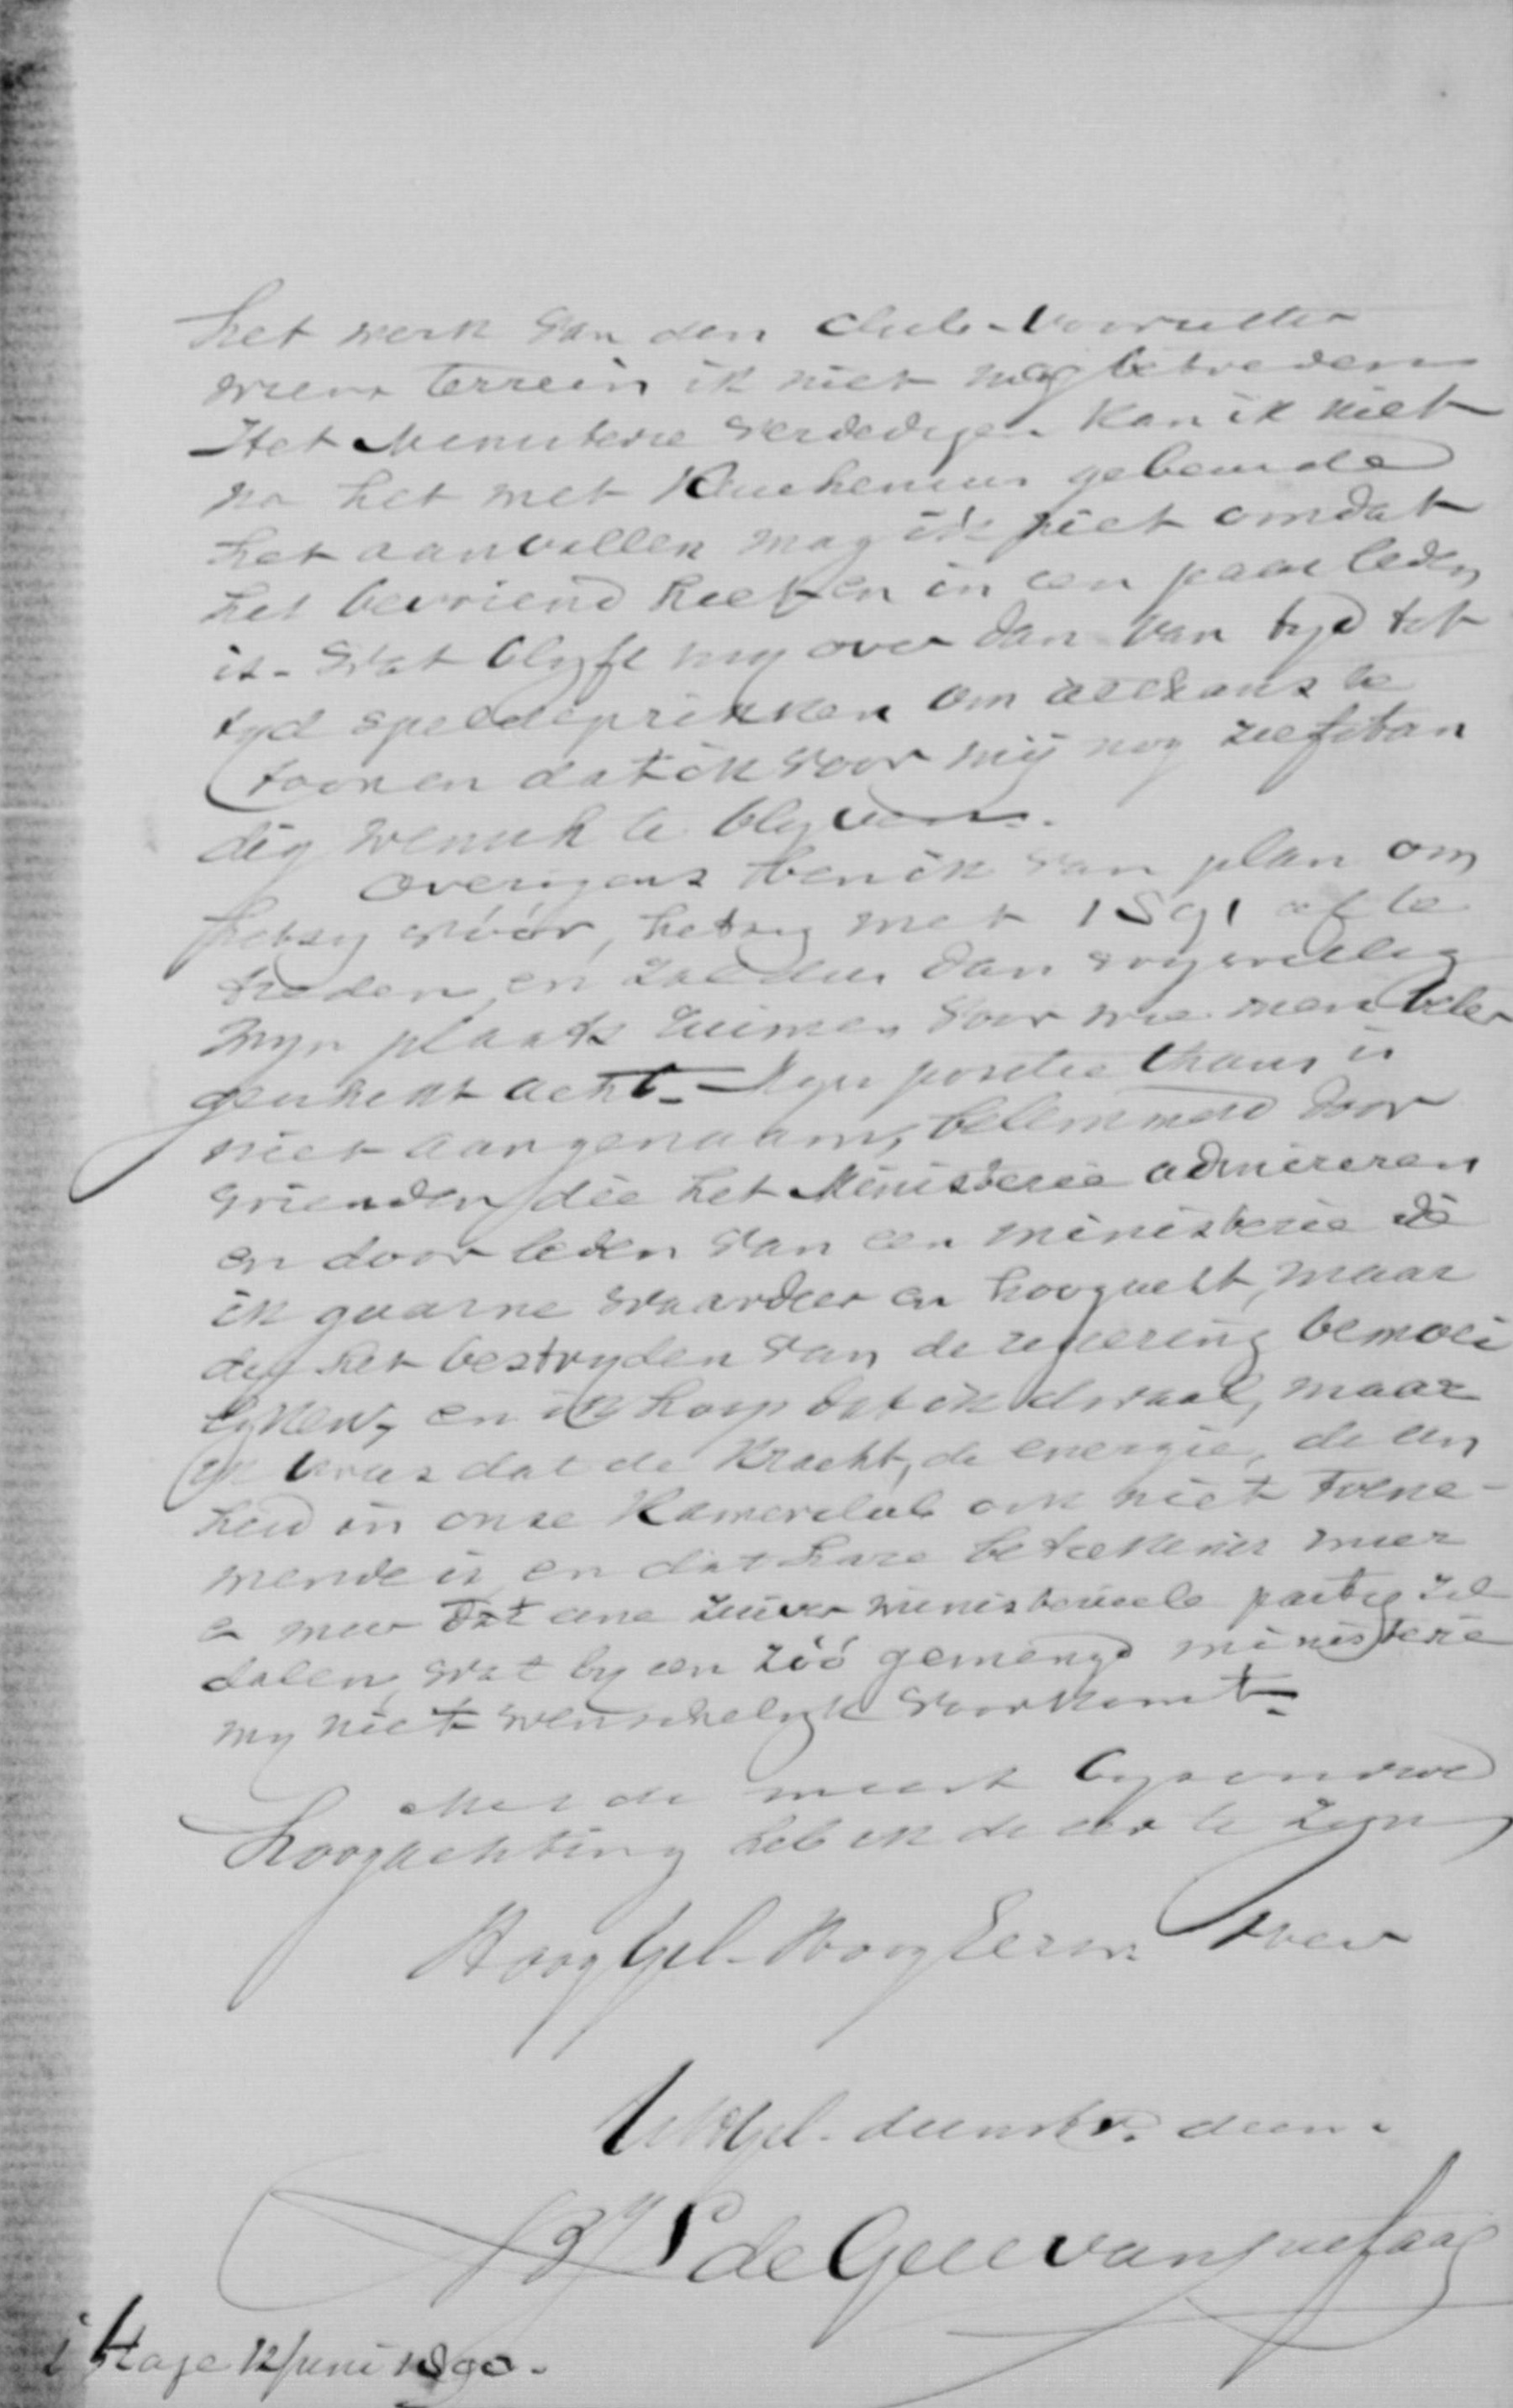 het werk van den club-voorzitter
wiens terrein ik niet mag betreden
Het Ministerie verdedigen kan ik niet
na het met Keuchenius gebeurde
het aanvallen mag ik niet omdat
het bevriend heet en in een paar leden
is. Wat blyft my over dan van tyd tot
tyd speldeprikken om althans te
toonen dat ik voor mij nog zelfstan
dig wensch te blyven.
Overigens ben ik van plan om
hetzy vóór, hetzy met 1891 af te
treden, en zal dus dan vrywillig
myn plaats ruimen voor wie men beter
geschikt acht. Myn positie thans is
niet aangenaam, belemmerd door
vrienden die het Ministerie admireren
en door leden van een ministerie die
ik gaarne waardeer en hoogacht, maar
die het bestryden van de regeering bemoei
lyken, en ik hoop dat ik dwaal, maar
ik vrees dat de kracht, de energie, de een
heid in onze Kamerclub ook niet toene-
mende is en dat hare beteekenis meer
en meer tot eene zuiver ministerieele party zal
dalen, wat by een zóó gemengd ministerie
my niet wenschelyk voorkomt.
Met de meest byzondere
hoogachting heb ik de eer te zyn
HoogGel. HoogEerw. Heer
UHGel. dienstv. dien.
de Geer van Jutfaas
's Hage 12 Juni 1890.